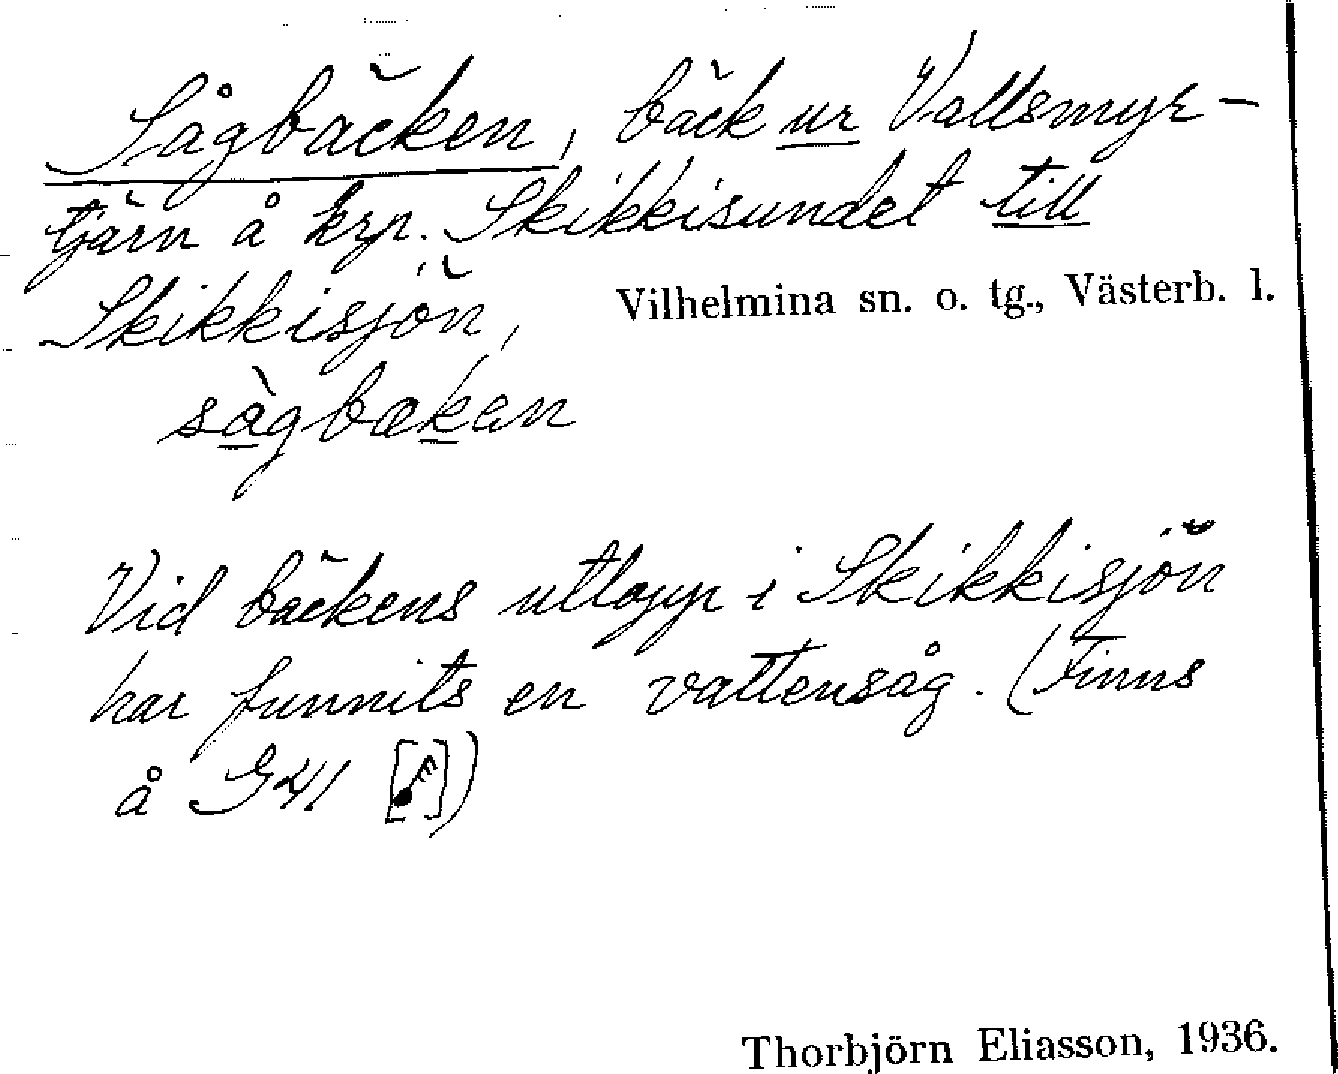 Sågbäcken, bäck ur Vallsmyr-
tjärn å krp. Skikkisundet till
Skikkisjön,
Vilhelmina sn. o. tg., Västerb. l.
sàgbækan
Vid bäckens utlopp i Skikkisjön
har funnits en vattensåg. (Finns
å G41 [ ])
Thorbjörn Eliasson, 1936.